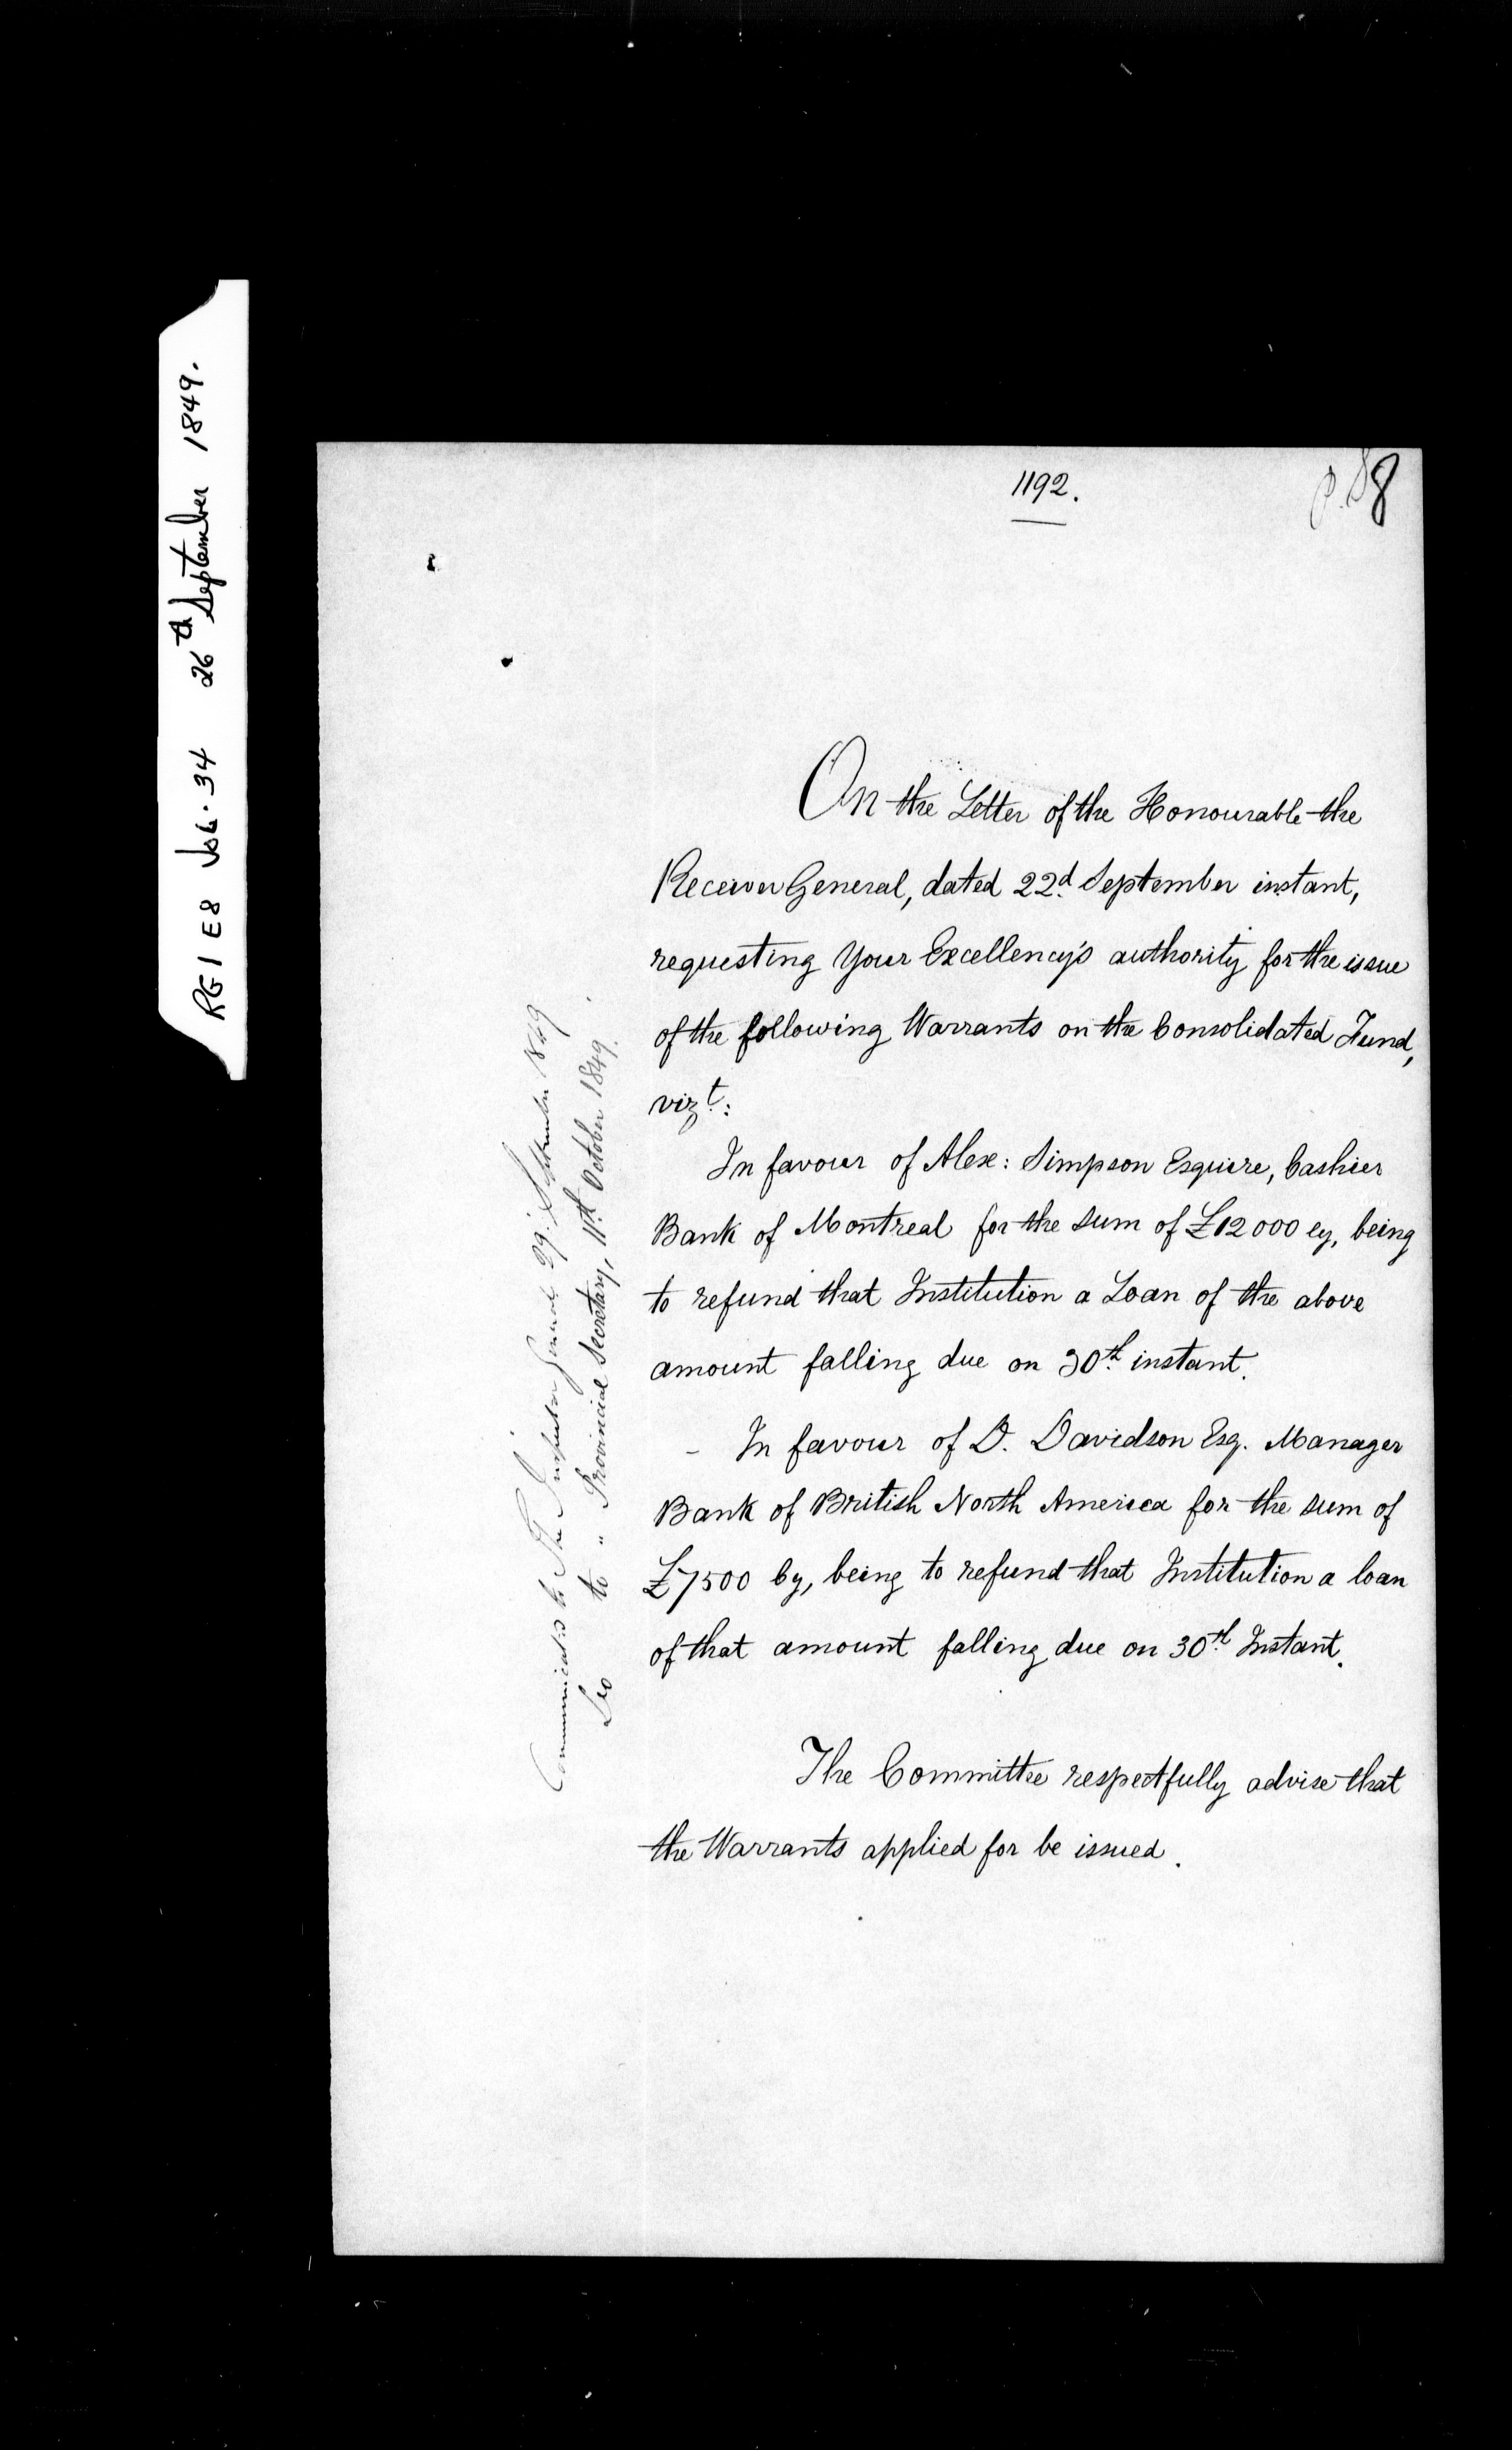 RG 1 E8 Vol. 34 26th September 1849.
1192.
On the Letter of the Honourable the
Receiver General, dated 22d September instant,
requesting Your Excellency's authority for the issue
of the following Warrants on the Consolidated Fund,
vizt:
In favour of Alex: Simpson Esquire, Cashier
Bank of Montreal for the sum of £12000 cy, being
to refund that Institution a Loan of the above
amount falling due on 30th instant.
- In favour of D. Davidson Esq. Manager
Bank of British North America for the sum of
£7500 Cy, being to refund that Institution a loan
of that amount falling due on 30th Instant.
The Committee respectfully advise that
the Warrants applied for be issued.
Communicated to The Inspector General 29. September 1849
Do to " Provincial Secretary, 11th October 1849.